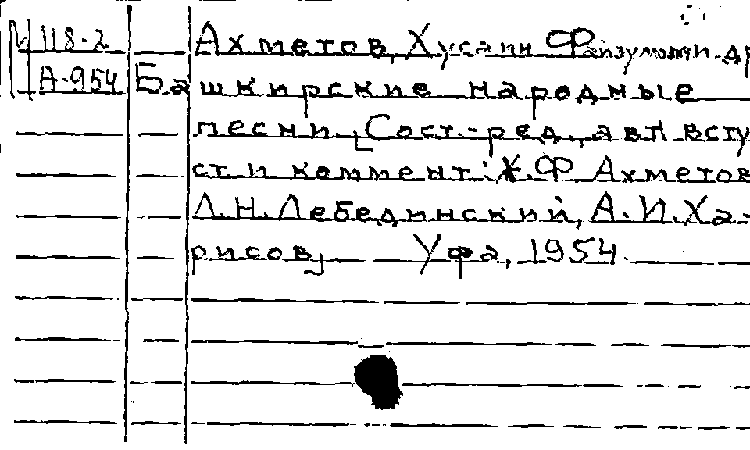 118-2 Ахметов, Хусаин Файзуллович. др
А-954 Башкирские народные
песни. [Сост.-ред., авт. всту
ст и коммент: Х.Ф Ахметов
Л.Н. Лебединский, А.И. Ха-
рисов] Уфа, 1954